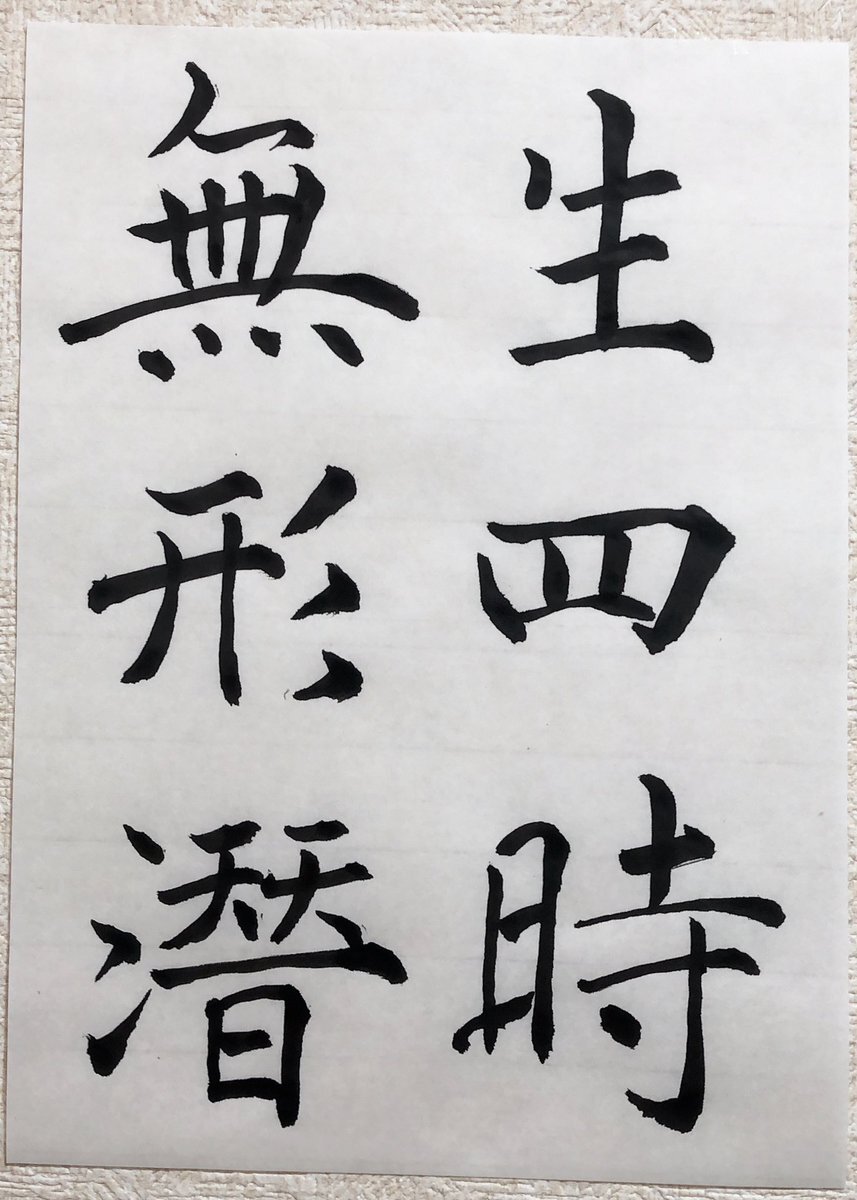 生四時
無形潛